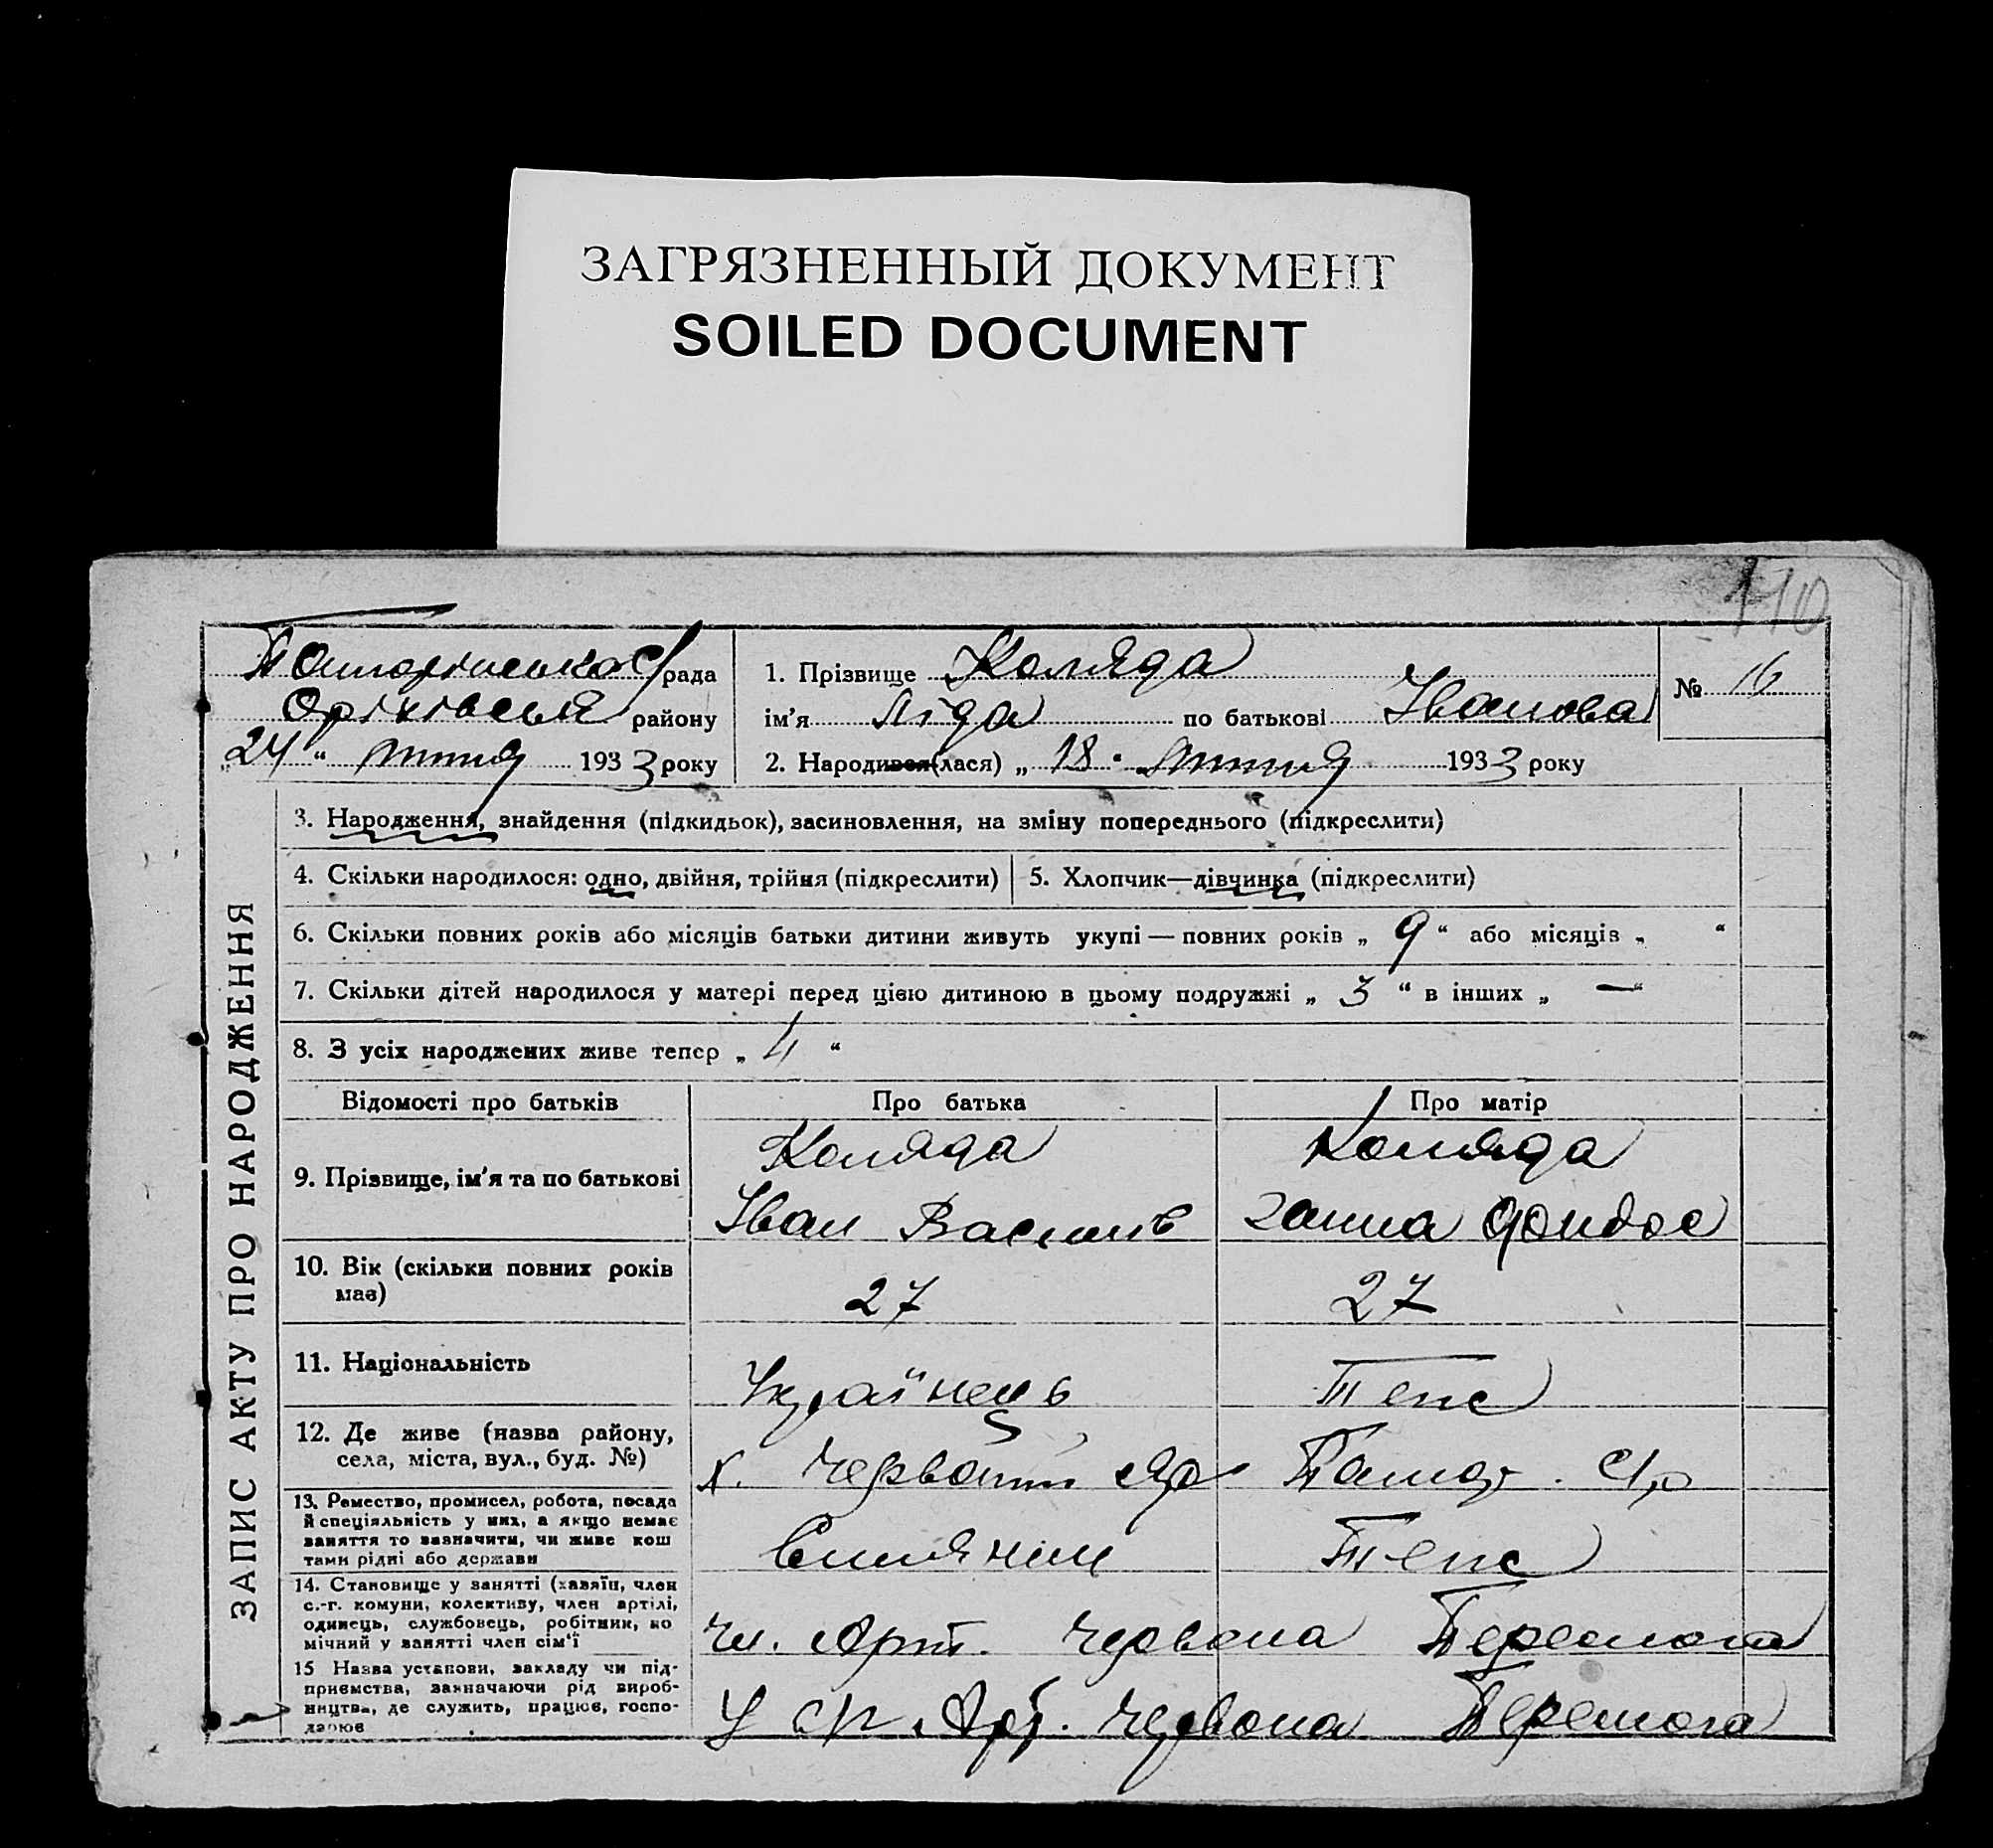 ЗАГРЯЗНЕННЫЙ ДОКУМЕНТ
SOILED DOCUMENT
110
рада
Оріхівськ району
„24“ липня 1933 року
1. Прізвище Коляда
ім'я Ліда по батькові Іванова
№ 16
2. Народився (лася) „18“ липня 1933 року
ЗАПИС АКТУ ПРО НАРОДЖЕННЯ
3. Народження, знайдення (підкидьок), засиновлення, на зміну попереднього (підкреслити)
4. Скільки народилося: одно, двійня, трійня (підкреслити)
5. Хлопчик—дівчинка (підкреслити)
6. Скільки повних років або місяців батьки дитини живуть укупі — повних років „ 9 “ або місяців „ “
7. Скільки дітей народилося у матері перед цією дитиною в цьому подружжі „ 3 “ в інших „ — “
8. З усіх народжених живе тепер „ 4 “
Відомості про батьків
Про батька
Про матір
9. Прізвище, ім'я та по батькові
Коляда
Іван Василів
Коляда
Ганна
10. Вік (скільки повних років
має)
27
27
11. Національність
Українець
Теж
12. Де живе (назва району,
села, міста, вул., буд. №)
х. Червоний Яр
13. Ремество, промисел, робота, посада
й спеціяльність у них, а якщо немає
заняття то зазначити, чи живе кош
тами рідні або держави
Селянин
Теж
14. Становище у занятті (хазяїн, член
с.-г. комуни, колективу, член артілі,
одинець, службовець, робітник, по
мічний у занятті член сім'ї
Чл. Арт. Червона Перемога
15 Назва установи, закладу чи під-
приємства, зазначаючи рід вироб-
ництва, де служить, працює, госпо-
дарює
У с/г Арт. Червона Перемога